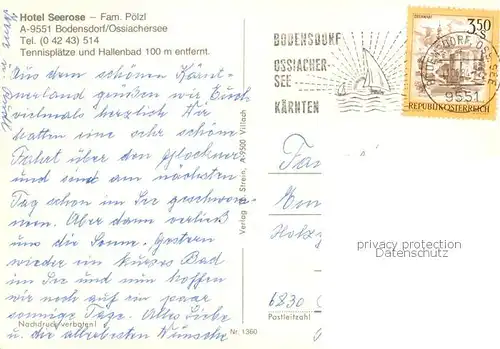 Hotel Seerose – Fam. Pölzl
A-9551 Bodensdorf/Ossiachersee
Tel. (0 42 43) 514
Tennisplätze und Hallenbad 100 m entfernt.
Aus dem schönen Kärnt-
nerland grüßen wir Euch
vielmals herzlich. Wir
hatten eine sehr schöne
Fahrt über den Glockner
und sind am nächsten
Tag schon im See geschwom-
men. Aber dann verließ
uns die Sonne. Gestern
wieder ein kurzes Bad
im See und nun hoffen
wir noch auf ein paar
sonnige Tage. Alles Liebe
u. die allerbesten Wünsche
Nachdruck verboten!
Nr. 1360
Verlag F. Strein, A-9500 Villach
BODENSDORF
OSSIACHER-
SEE
KÄRNTEN
3.50
S
REPUBLIK ÖSTERREICH
9551
privacy protection
AnsichtskartenVersand
6830
Postleitzahl